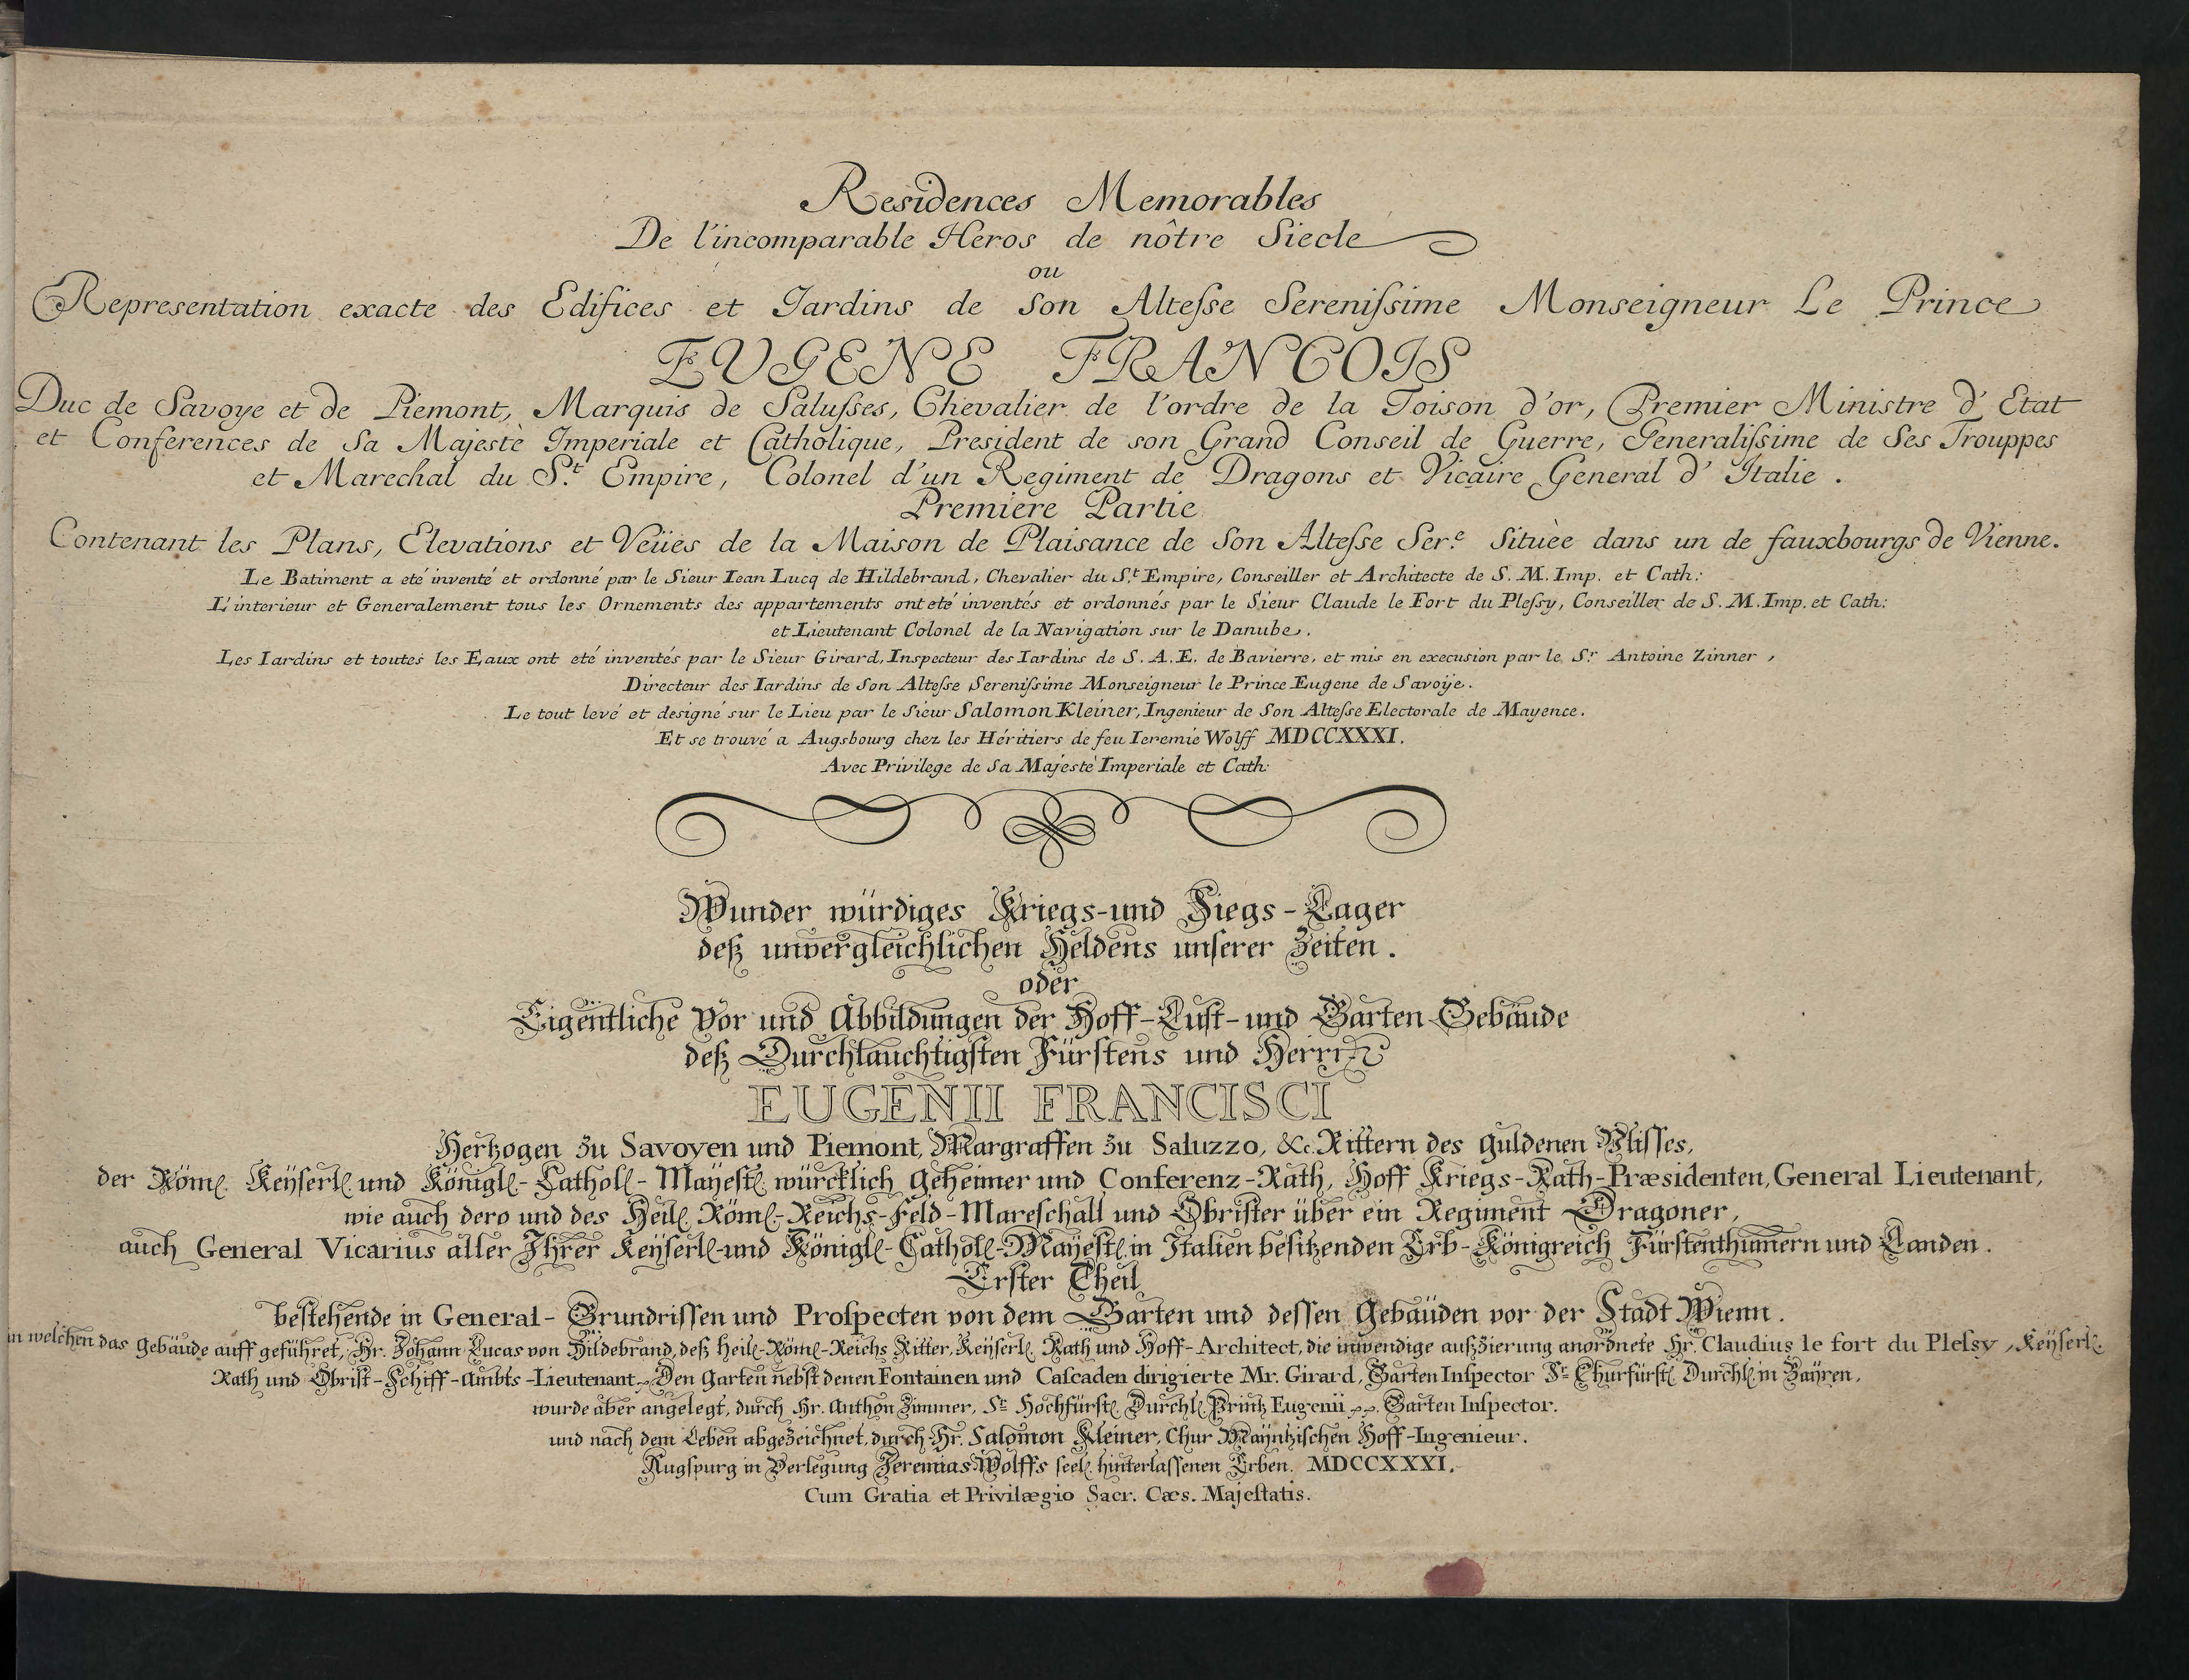 Residences Memorables
De l'incomparable Heros de nôtre Siecle
ou
Representation exacte des Edifices et Jardins de Son Altesse Serenissime Monseigneur Le Prince
EUGENE FRANCOIS
Duc de Savoye et de Piemont, Marquis de Salusses, Chevalier de l'ordre de la Toison d'or, Premier Ministre d'Etat
et Conferences de Sa Majestè Imperiale et Catholique, President de son Grand Conseil de Guerre, Generalissime de Ses Trouppes
et Marechal du St. Empire, Colonel d'un Regiment de Dragons et Vicaire General d'Italie.
Premiere Partie
Contenant les Plans, Elevations et Veües de la Maison de Plaisance de Son Altesse Ser.e Situèe dans un de fauxbourgs de Vienne.
Le Batiment a eté inventé et ordonné par le Sieur Iean Lucq de Hildebrand, Chevalier du S.t Empire, Conseiller et Architecte de S. M. Imp. et Cath:
L'interieur et Generalement tous les Ornements des appartements ont eté inventés et ordonnés par le Sieur Claude le Fort du Plessy, Conseiller de S. M. Imp. et Cath:
et Lieutenant Colonel de la Navigation sur le Danube.
Les Iardins et toutes les Eaux ont eté inventés par le Sieur Girard, Inspecteur des Iardins de S. A. E. de Bavierre, et mis en execusion par le S.r Antoine Zinner,
Directeur des Iardins de Son Altesse Serenissime Monseigneur le Prince Eugene de Savoÿe.
Le tout levé et designé sur le Lieu par le Sieur Salomon Kleiner, Ingenieur de Son Altesse Electorale de Mayence.
Et se trouvé a Augsbourg chez les Héritiers de feu Ieremie Wolff MDCCXXXI.
Avec Privilege de Sa Majestè Imperiale et Cath:
Wunder würdiges Kriegs-und Siegs-Lager
deß unvergleichlichen Heldens unserer Zeiten.
oder
Eigentliche Vor und Abbildungen der Hoff-Lust-und Garten Gebäude
deß Durchlauchtigsten Fürstens und Herrn
EUGENII FRANCISCI
Hertzogen zu Savoyen und Piemont, Margraffen zu Saluzzo, &c. Rittern des guldenen Vlisses,
der Röml. Keÿserl. und Königl.-Cathol.-Maÿest. würcklich geheimer und Conferenz-Rath, Hoff Kriegs-Rath-Præsidenten, General Lieutenant,
wie auch dero und des Heil. Röml.-Reichs-Feld-Mareschall und Obrister über ein Regiment Dragoner,
auch General Vicarius aller Ihrer Keÿserl.-und Königl.-Cathol.-Maÿest. in Italien besitzenden Erb-Königreich Fürstenthümern und Landen.
Erster Theil
bestehende in General-Grundrissen und Prospecten von dem Garten und dessen Gebäuden vor der Stadt Wienn.
in welchen das Gebäude auff geführet, Hr. Johann Lucas von Hildebrand, deß Heil.-Röml.-Reichs Ritter, Keÿserl. Rath und Hoff-Architect, die inwendige außzierung anordnete Hr. Claudius le fort du Plessy, Keÿserl.
Rath und Obrist-Schiff-Ambts-Lieutenant. Den Garten nebst denen Fontainen und Cascaden dirigierte Mr. Girard, Garten Inspector Sr. Churfürstl. Durchl. in Baÿren,
wurde aber angelegt, durch Hr. Anthon Zinner, Sr. Hochfürstl. Durchl. Printz Eugenii Garten Inspector.
und nach dem Leben abgezeichnet, durch Hr. Salomon Kleiner, Chur Mayntzischen Hoff-Ingenieur.
Augspurg in Verlegung Jeremias Wolffs seel. hinterlassenen Erben. MDCCXXXI.
Cum Gratia et Privilægio Sacr. Cæs. Majestatis.